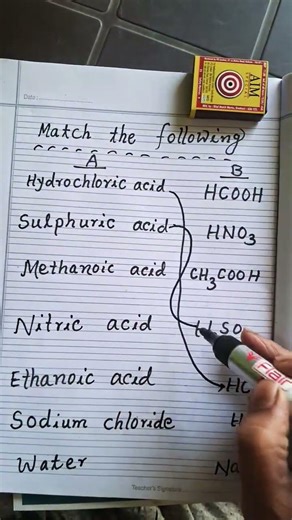 Date:
AIM
Match the following
A B
Hydrochloric acid HCOOH
Sulphuric acid HNO3
Methanoic acid CH3COOH
Nitric acid
Ethanoic acid HC
Sodium chloride H
Water Na
Teacher's Signature